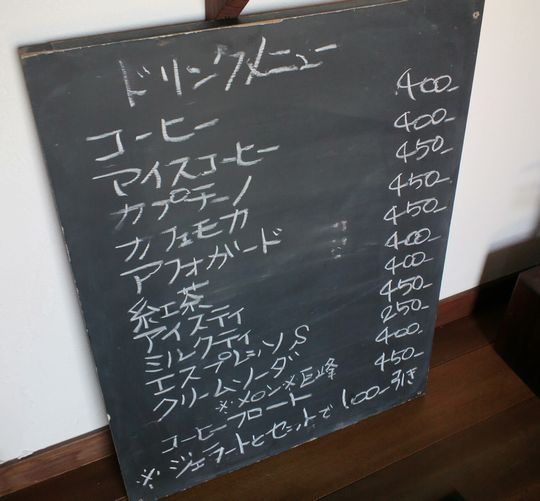 ドリンクメニュー
コーヒー 400-
アイスコーヒー 400-
カプチーノ 450-
カフェモカ 450-
アフォガード 450-
紅茶 400-
アイスティ 400-
ミルクティ 450-
エスプレッソ S 250-
クリームソーダ 400-
※メロン※巨峰
コーヒーフロート 450-
※ジェラートとセットで100-引き